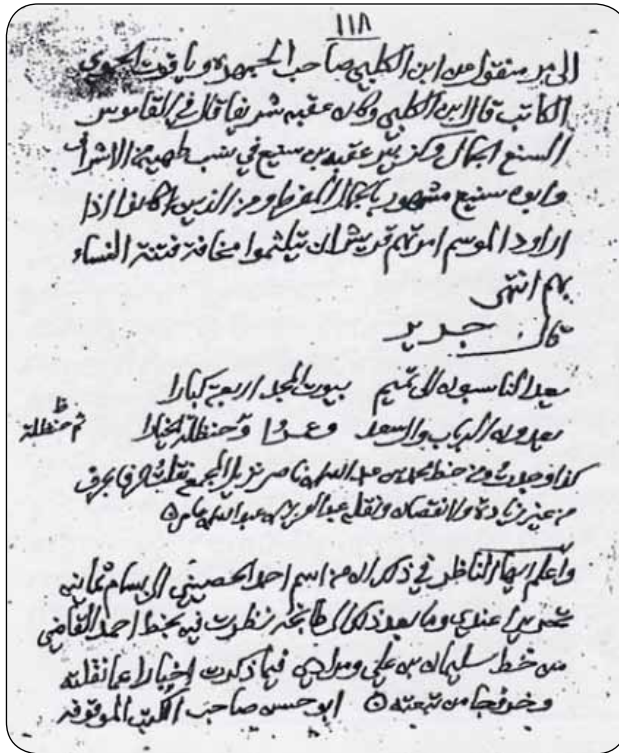 ١١٨
الى مر منقول من ابن الكلبي صاحب الجمهرة وياقوت الحموي
الكاتب قال ابن الكلبي وكان عقبه شريفا قال في القاموس
السنع الجمال وكزبير عقبه بن سنيع في نسب طهيه من الاشراف
وابوه سنيع مشهور بالجمال المفرط ومن الذين كانوا اذا
ارادوا الموسم امرتهم قريش ان يتلثموا مخافة فتنة النساء
بهم انتهى
قال جرير
يعد الناسبون الى تميم بيوت المجد اربعة كبارا
يعدون الرباب وال سعد وعمرا ثم حنظلة الخيارا
ثم حنظلة ظ
كذا وجدت من خط محمد بن عبد الله بن ناصر نزيل المجمع نقلته حرفا بحرف
من غير زيادة ولا نقصان ونقله عبد العزيز بن عبد الله بن عامر
وأعلم ايها الناظر في ذكر ان من اسم احمد الحصيني الى بسام ثمانية
عندي وما بعد ذلك الى طابخة نظرت فيه بخط احمد القاضي
من خط سليمان بن علي ومرادي فيما ذكرت اخبارا عما نقلته
وخروجا من تبعته ابو حسن صاحب الكتب الموقوفه